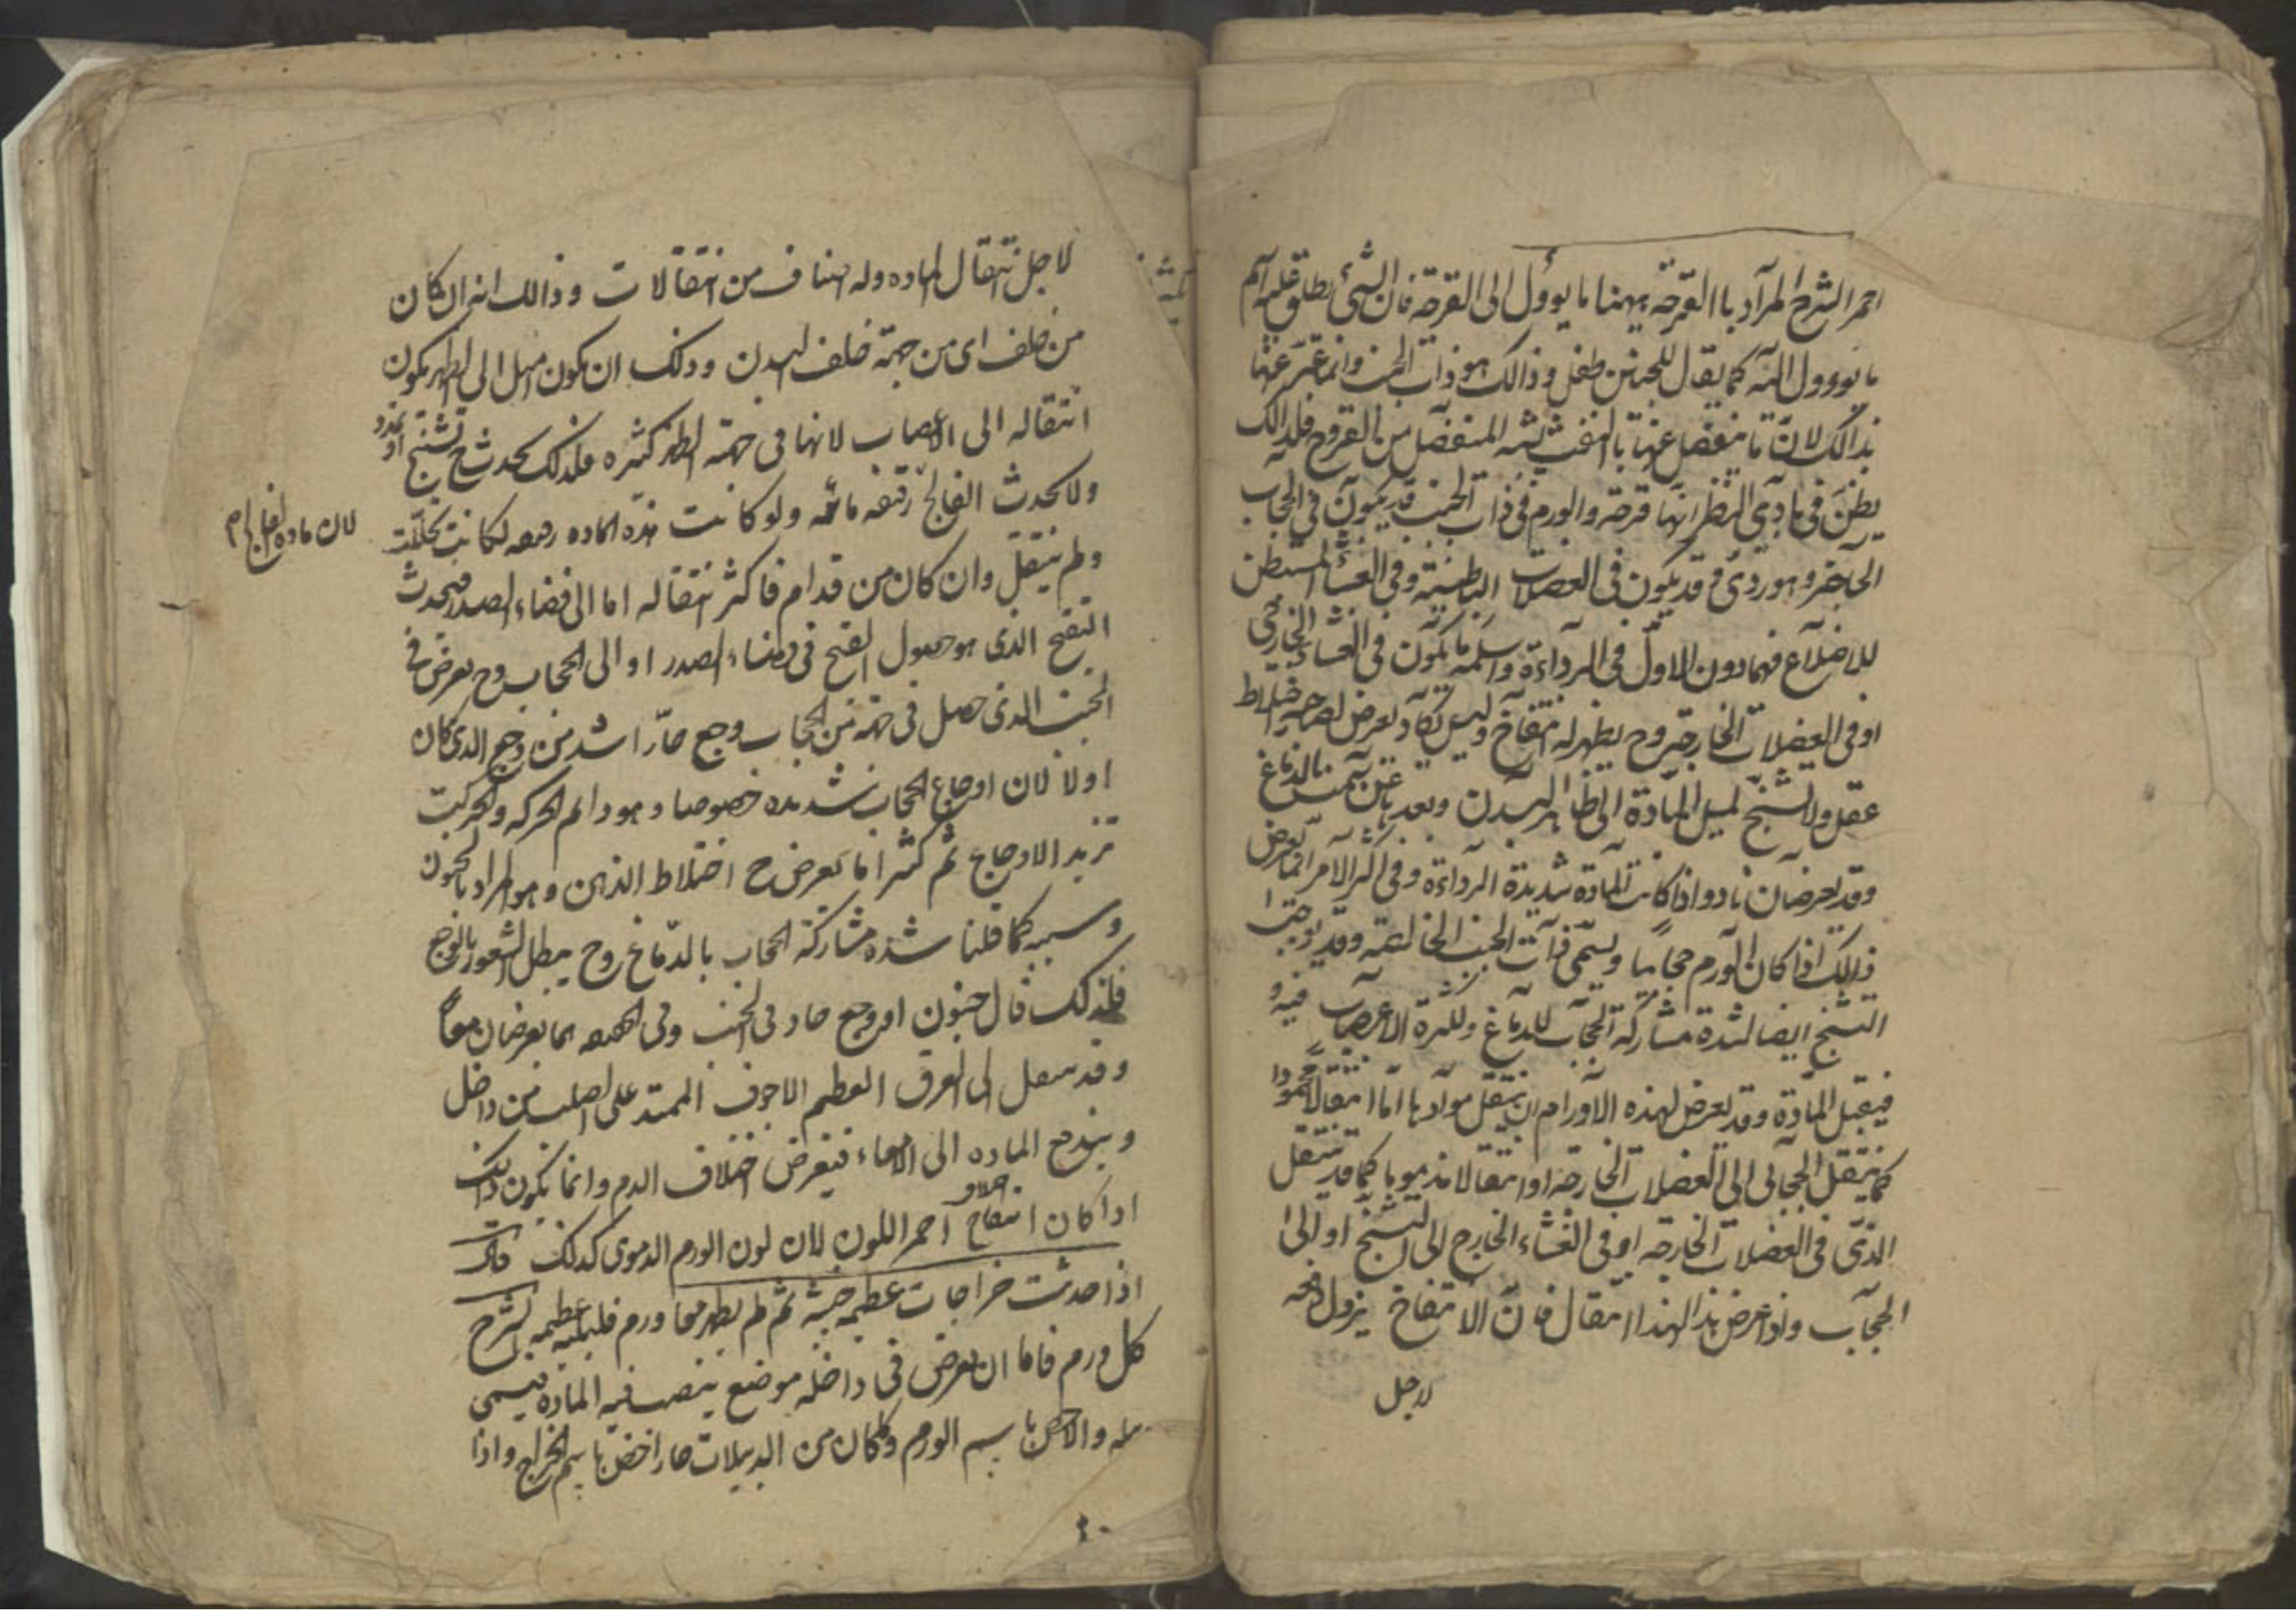 احمر الشرح المرآد باالقرحة ههنا ما يوؤل الى القرحة فان الشئ يطلق عليه اسم
ما يوؤول اليه كما يقال للجنين طفل وذالك هو ذات الجنب وانما عبّر عنها
بذالك لانّ ما ينفصل عنها بالنفث يشبه المنفصل من القروح فلذالك
يظنّ فى بادى النظر انها قرحة والورم فى ذات الجنب قد يكون فى الحجاب
الحاجز وهو ردئ وقد يكون فى العضلات الباطنية وفى الغشاء المستبطن
للاضلاع فهما دون الاول فى الرداءة واسلمه ما يكون فى الغشاء الخارجى
او فى العضلات الخارجة وح يظهر له انتفاخ وليس يكاد يعرض لصاحبه اختلاط
عقل ولا تشنج لميل المادة الى ظاهر البدن وبعدها عن الدماغ
وقد يعرضان نادرا اذا كانت المادة شديدة الرداءة وفى اكثر الامر انما يعرض
ذالك اذا كان الورم حجابيا ويسمى ذات الجنب الخالصة وقد يوجب
التشنج ايضا لشدة مشاركة الحجاب للدماغ ولكثرة الاعصاب فيه و
فيقبل المادة وقد يعرض لهذه الاورام ان ينتقل موادها امّا انتقالا محمودا
كما ينتقل الحجابى الى العضلات الخارجة او انتقالا مذموما كما قد ينتقل
الذى فى العضلات الخارجة او فى الغشاء الخارج الى التشنج او الى
الحجاب واذا عرض هذا انتقال فان الانتفاخ يزول دفعه
لاجل
لاجل انتقال الماده وله اصناف من انتقالات وذالك انه ان كان
من خلف اى من جهة خلف البدن وذلك ان يكون اميل الى الظهر يكون
انتقاله الى الاعصاب لانها فى جهة الظهر كثيره فلذلك يحدث ح تشنج او تمدد
ولا يحدث الفالج رقيقه مائيه ولو كانت هذه الماده رقيقه لكانت تحللت
لان ماده الفالج
ولم ينتقل وان كان من قدام فاكثر انتقاله اما الى فضاء الصدر فيحدث
التقيح الذى هو حصول القيح فى فضاء الصدر او الى الحجاب وح يعرض فى
الجنب الذى حصل فى جهة من الحجاب وجع حارّ اشد من وجع الذى كان
اولا لان اوجاع الحجاب شديده خصوصا وهو دائم الحركه والحركت
تزيد الاوجاع ثم كثيرا ما يعرض ح اختلاط الذهن وهو المراد بالجنون
وسببه كما قلنا شده مشاركة الحجاب بالدماغ وح يبطل الشعور بالوجع
فلذلك قال جنون او وجع حاد فى الجنب وفى الحقيقه هما يعرضان معاً
وقد ينتقل الى العرق العظيم الاجوف الممتد على الصلب من داخل
ويندفع الماده الى الامعاء فيعرض اختلاف الدم وانما يكون ذلك
اذا كان انتفاخ احمر اللون لان لون الورم الدموى كذلك قال
اذا حدثت خراجات عظيمه خبيثه ثم لم يظهر معها ورم فالبليه عظيمه الشرح
كل ورم فاما ان يعرض فى داخله موضع ينصب فيه الماده فيسمى
دبيله والا خص باسم الورم وما كان من الدبيلات حارا خص باسم الخراج واذا